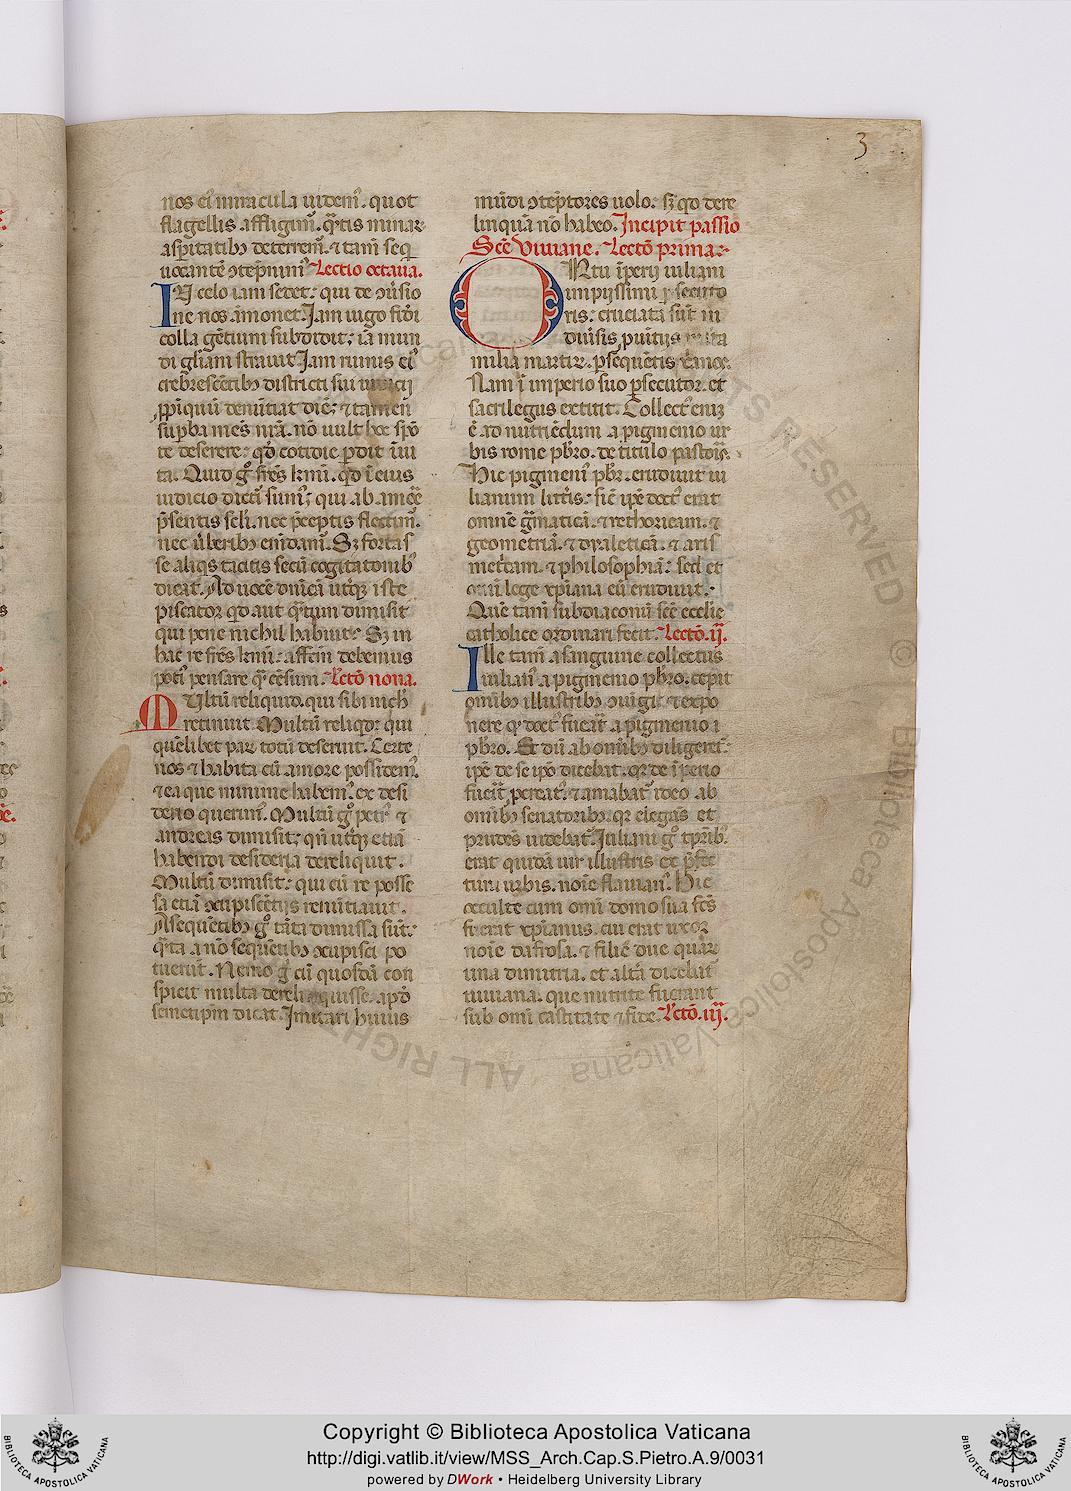 3
nos eiꝰ miracula uidemꝰ. quot
flagellis affligimꝰ. qͣtis minaꝝ
asp̱itatibꝰ deterremꝰ. ⁊ tam̄ seq̱
uocantē ↄtēpnimꝰ Lectio octaua.
IN celo iam sedet: qui de ↄūsio
ne nos āmonet. Iam iugo fidei
colla gētium subdidit: iā mun
di gl̄iam strauit. Iam ruinis eiꝰ
crebrescētibꝰ districti sui iudicij
p̱pīquū denūtiat diē; ⁊ tamen
sup̱ba mēs nr̄a. nō uult hoc spō
te deserere: qd̓ cotidie p̱dit īui
ta. Quid gͦ fr̄es kr̄mi. qd̓ ī eius
iudicio dicturi sumꝰ; qui ab amore
p̄sentis sc̄li. nec p̄ceptis flectimꝰ.
nec ūberibꝰ emēdamꝰ. Sꝫ fortas
se aliqͥs tacitis secū cogitationibꝰ
dicat. Ad uocē dnīcā utͥqꝫ iste
piscator qd̓ aut qͣtum dimisit
qui pene nichil habuit: Sꝫ in
hac re fr̄es kr̄mi: affectū debemus
potiꝰ pensare qͣ cēsum. Lectō nona.
MUltū reliquid. qui sibi nichil
retinuit. Multū reliqͥd: qui
quēlibet paꝝ totū deseruit. Certe
nos ⁊ habita cū amore possidemꝰ.
⁊ ea que minime habemꝰ. ex desi
derio querimꝰ. Multū gͦ petrꝰ ⁊
andreas dimisit; qn̄ utͥqꝫ etiā
habendi desideria dereliquit.
Multū dimisit: qui cū re posse
sa etiā ↄcupiscētijs renūtiauit.
Asequētibꝰ gͦ tāta dimissa sūt:
qͣta a nō sequētibꝰ ↄcupisci po
tuerūt. Nemo gͦ cū quosdā con
spicit multa dereliquisse. apd̓
semetip̄m dicat. Imitari huius
mūdi ↄtēptores uolo. sꝫ qd̓ dere
linquā nō habeo. Incipit passio
Sc̄e Viuiane. Lectō prima:
ORtu īperij iuliani
impijssimi p̱secuto
ris: cruciata sūt in
diuīsis puītijs multa
milia martirꝝ. p̱sequētis xp̄ianos.
Nam ī imperio suo p̱secutor. et
sacrilegus extitit. Collectꝰ enī
ē ad nutriēdum a pigmenio ur
bis rome pb̄ro. de titulo pastoris.
Hic pigmeniꝰ pb̄r. erudiuit iu
lianum litt̓is: sic̄ ip̄e doctꝰ erat
omnē gͣmaticā. ⁊ rethoricam. ⁊
geometriā. ⁊ dyaleticā. ⁊ aris
meticam. ⁊ philosophiā: sed et
omī lege xp̄iana eū erudiuit.
Quē tam̄ subdiaconū sc̄e eccl̄ie
catholice ordinari fecit. Lectō. ij.
Ille tam̄ a sanguine collectus
iulianꝰ a pigmenio pb̄ro. cepit
omībꝰ illustribꝰ ↄiūgi. ⁊ expo
nere qͥ doctꝰ fuerat a pigmenio
pb̄ro. Et dū ab omībꝰ diligeretꝰ:
ip̄e de se ip̄o dicebat. qꝛ de īperio
fuerat pereatꝰ. ⁊ amabatꝰ ideo ab
omībꝰ senatoribꝰ. qꝛ elegās et
prudēs uidebatꝰ. Iuliani gͦ tp̄ribꝰ.
erat quidā uir illustris ex p̄fec
tura urbis. noīe flauianꝰ. Hic
occulte cum omī domo sua fc̄s
fuerat xp̄ianus. cui erat uxor
noīe dafrosa. ⁊ filie due quaꝝ
una dimitria. et altā dicebat
uiuiana. que nutrite fuerant
sub omī castitate ⁊ fide. Lectō. iij.
Copyright © Biblioteca Apostolica Vaticana
http://digi.vatlib.it/view/MSS_Arch.Cap.S.Pietro.A.9/0031
powered by DWork • Heidelberg University Library